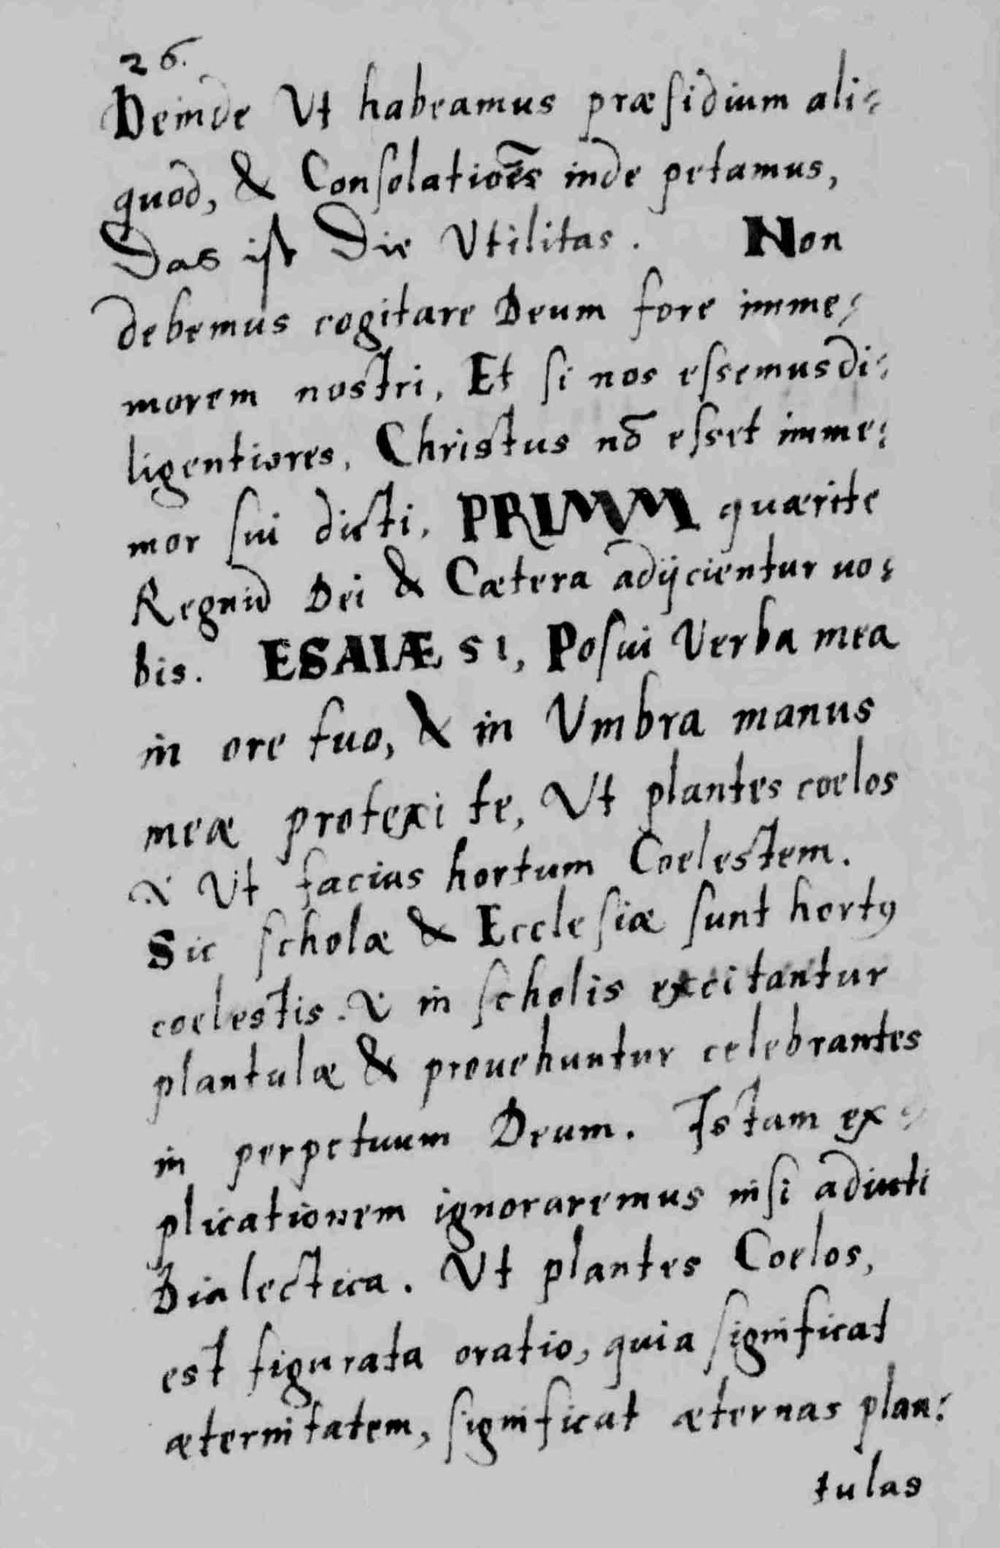 26.
Deinde Ut habeamus præsidium ali=
quod, & Consolatioēs inde petamus,
Das ist Die Utilitas. Non
debemus cogitare Deum fore imme=
morem nostri, Et si nos essemus di=
ligentiores, Christus nō esset imme=
mor sui dicti, PRIMVM quærite
Regnū Dei & Cætera adijcientur uo=
bis. ESAIÆ 51, Posui Verba mea
in ore tuo, & in Umbra manus
meæ protexi te, Ut plantes coelos
& Ut facias hortum Coelestem.
Sic scholæ & Ecclesiæ sunt hortꝰ
coelestis. & in scholis excitantur
plantulæ & prouehuntur celebrantes
in perpetuum Deum. Istam ex=
plicationem ignoraremus nisi adiuti
Dialectica. Ut plantes Coelos,
est figurata oratio, quia significat
æternitatem, significat æternas plan=
tulas